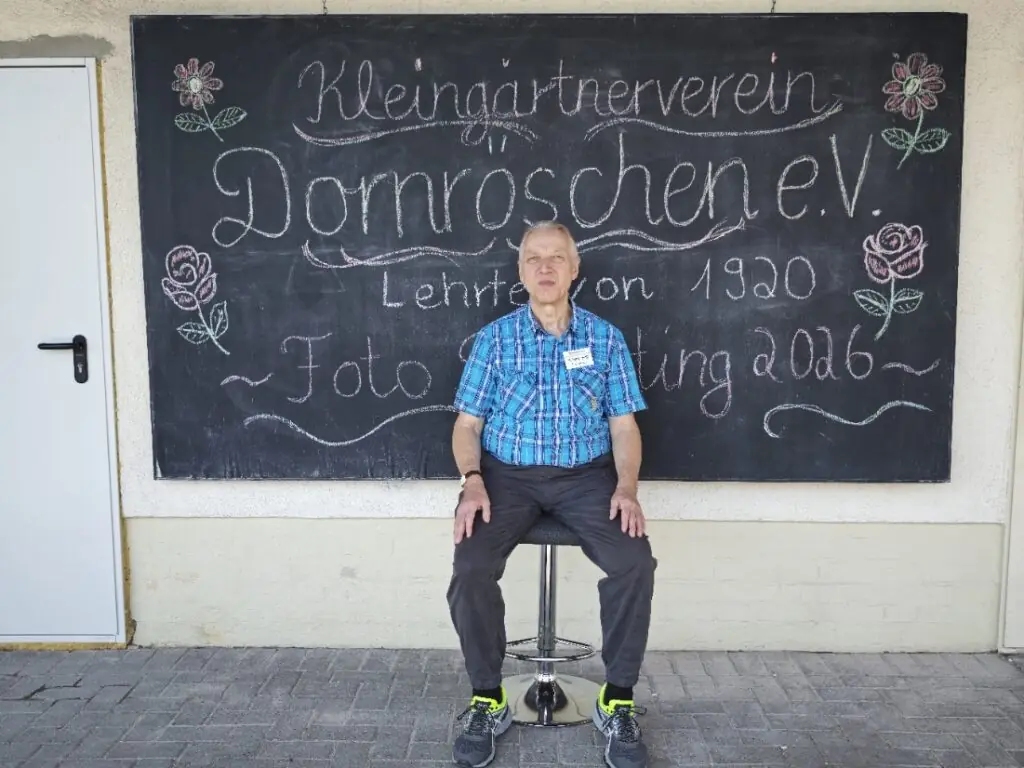 Kleingärtnerverein
Dornröschen e.V.
Lehrte von 1920
Foto ting 2026